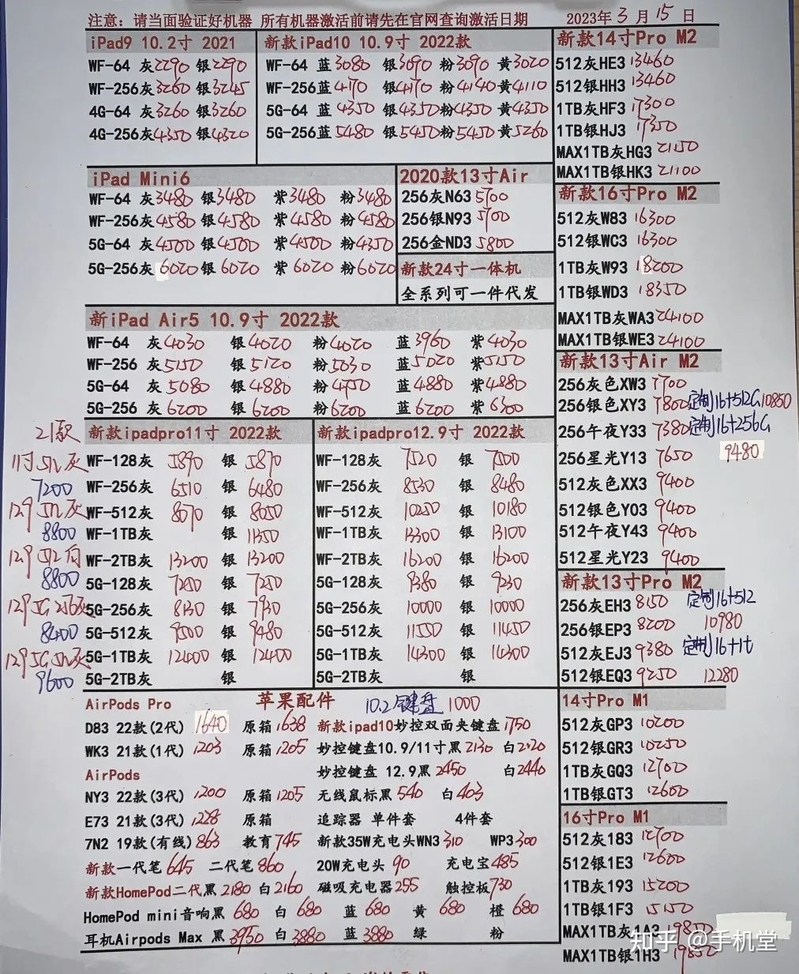 注意：请当面验证好机器 所有机器激活前请先在官网查询激活日期 2023年3月15日
iPad9 10.2寸 2021
WF-64 灰2290 银2290
WF-256灰3260 银3245
4G-64 灰3260 银3260
4G-256灰4350 银4320
新款iPad10 10.9寸 2022款
WF-64 蓝3080 银3090 粉3090 黄3020
WF-256蓝4170 银4170 粉4140 黄4110
5G-64 蓝4350 银4350 粉4350 黄4350
5G-256蓝5480 银5450 粉5450 黄5260
iPad Mini6
WF-64 灰3480 银3480 紫3480 粉3480
WF-256灰4580 银4580 紫4580 粉4580
5G-64 灰4500 银4500 紫4500 粉4350
5G-256灰6020 银6020 紫6020 粉6020
2020款13寸Air
256灰N63 5700
256银N93 5700
256金ND3 5800
新款24寸一体机
全系列可一件代发
新iPad Air5 10.9寸 2022款
WF-64 灰4030 银4020 粉4020 蓝3960 紫4030
WF-256 灰5150 银5120 粉5030 蓝5020 紫5150
5G-64 灰5080 银4880 粉4750 蓝4880 紫4880
5G-256 灰6200 银6200 粉6200 蓝6200 紫6300
21款
11寸512灰
7200
129 512灰
8800
129 512白
8800
129 5G 256灰
8400
129 5G 512灰
9600
新款ipadpro11寸 2022款
WF-128灰 5890 银 5870
WF-256灰 6510 银 6480
WF-512灰 8070 银 8050
WF-1TB灰 银 11350
WF-2TB灰 13200 银 13200
5G-128灰 7250 银 7250
5G-256灰 8130 银 7930
5G-512灰 9500 银 9480
5G-1TB灰 12400 银 12400
5G-2TB灰 银
新款ipadpro12.9寸 2022款
WF-128灰 7520 银 7500
WF-256灰 8530 银 8480
WF-512灰 10250 银 10180
WF-1TB灰 13300 银 13100
WF-2TB灰 16200 银 16200
5G-128灰 9380 银 9230
5G-256灰 10000 银 10000
5G-512灰 11550 银 11450
5G-1TB灰 14300 银 14300
5G-2TB灰 银
苹果配件 10.2键盘 1000
AirPods Pro
D83 22款(2代) 1640 原箱1638
WK3 21款(1代) 1203 原箱1205
AirPods
NY3 22款(3代) 1200 原箱1205
E73 21款(3代) 1228 原箱
7N2 19款(有线) 863 教育745
新款一代笔645 二代笔860
新款HomePod二代黑2180 白2160
新款ipad10妙控双面夹键盘1750
妙控键盘10.9/11寸黑2130 白2120
妙控键盘 12.9黑2450 白2440
无线鼠标黑540 白403
追踪器 单件套 4件套
新款35W充电头WN3 310 WP3 300
20W充电头 90 充电宝485
磁吸充电器255 触控板730
HomePod mini音响黑680 白 680 蓝 680 黄 680 橙 680
耳机Airpods Max 黑3950 白3880 蓝3880 绿 粉
新款14寸Pro M2
512灰HE3 13460
512银HH3 13460
1TB灰HF3 17300
1TB银HJ3 17350
MAX1TB灰HG3 21150
MAX1TB银HK3 21100
新款16寸Pro M2
512灰W83 16300
512银WC3 16300
1TB灰W93 18200
1TB银WD3 18350
MAX1TB灰WA3 24100
MAX1TB银WE3 24100
新款13寸Air M2
256灰色XW3 7700
256银色XY3 7800 定制16+512G 10850
256午夜Y33 7380 定制16+256G
256星光Y13 7650 9480
512灰色XX3 9400
512银色Y03 9400
512午夜Y43 9400
512星光Y23 9400
新款13寸Pro M2
256灰EH3 8150 定制16+512
256银EP3 8200 10980
512灰EJ3 9380 定制16+1t
512银EQ3 9250 12280
14寸Pro M1
512灰GP3 10200
512银GR3 10250
1TB灰GQ3 12700
1TB银GT3 12600
16寸Pro M1
512灰183 12700
512银1E3 12600
1TB灰193 15200
1TB银1F3 15150
MAX1TB灰1A3 19850
MAX1TB银1H3 19850
知乎 @手机堂